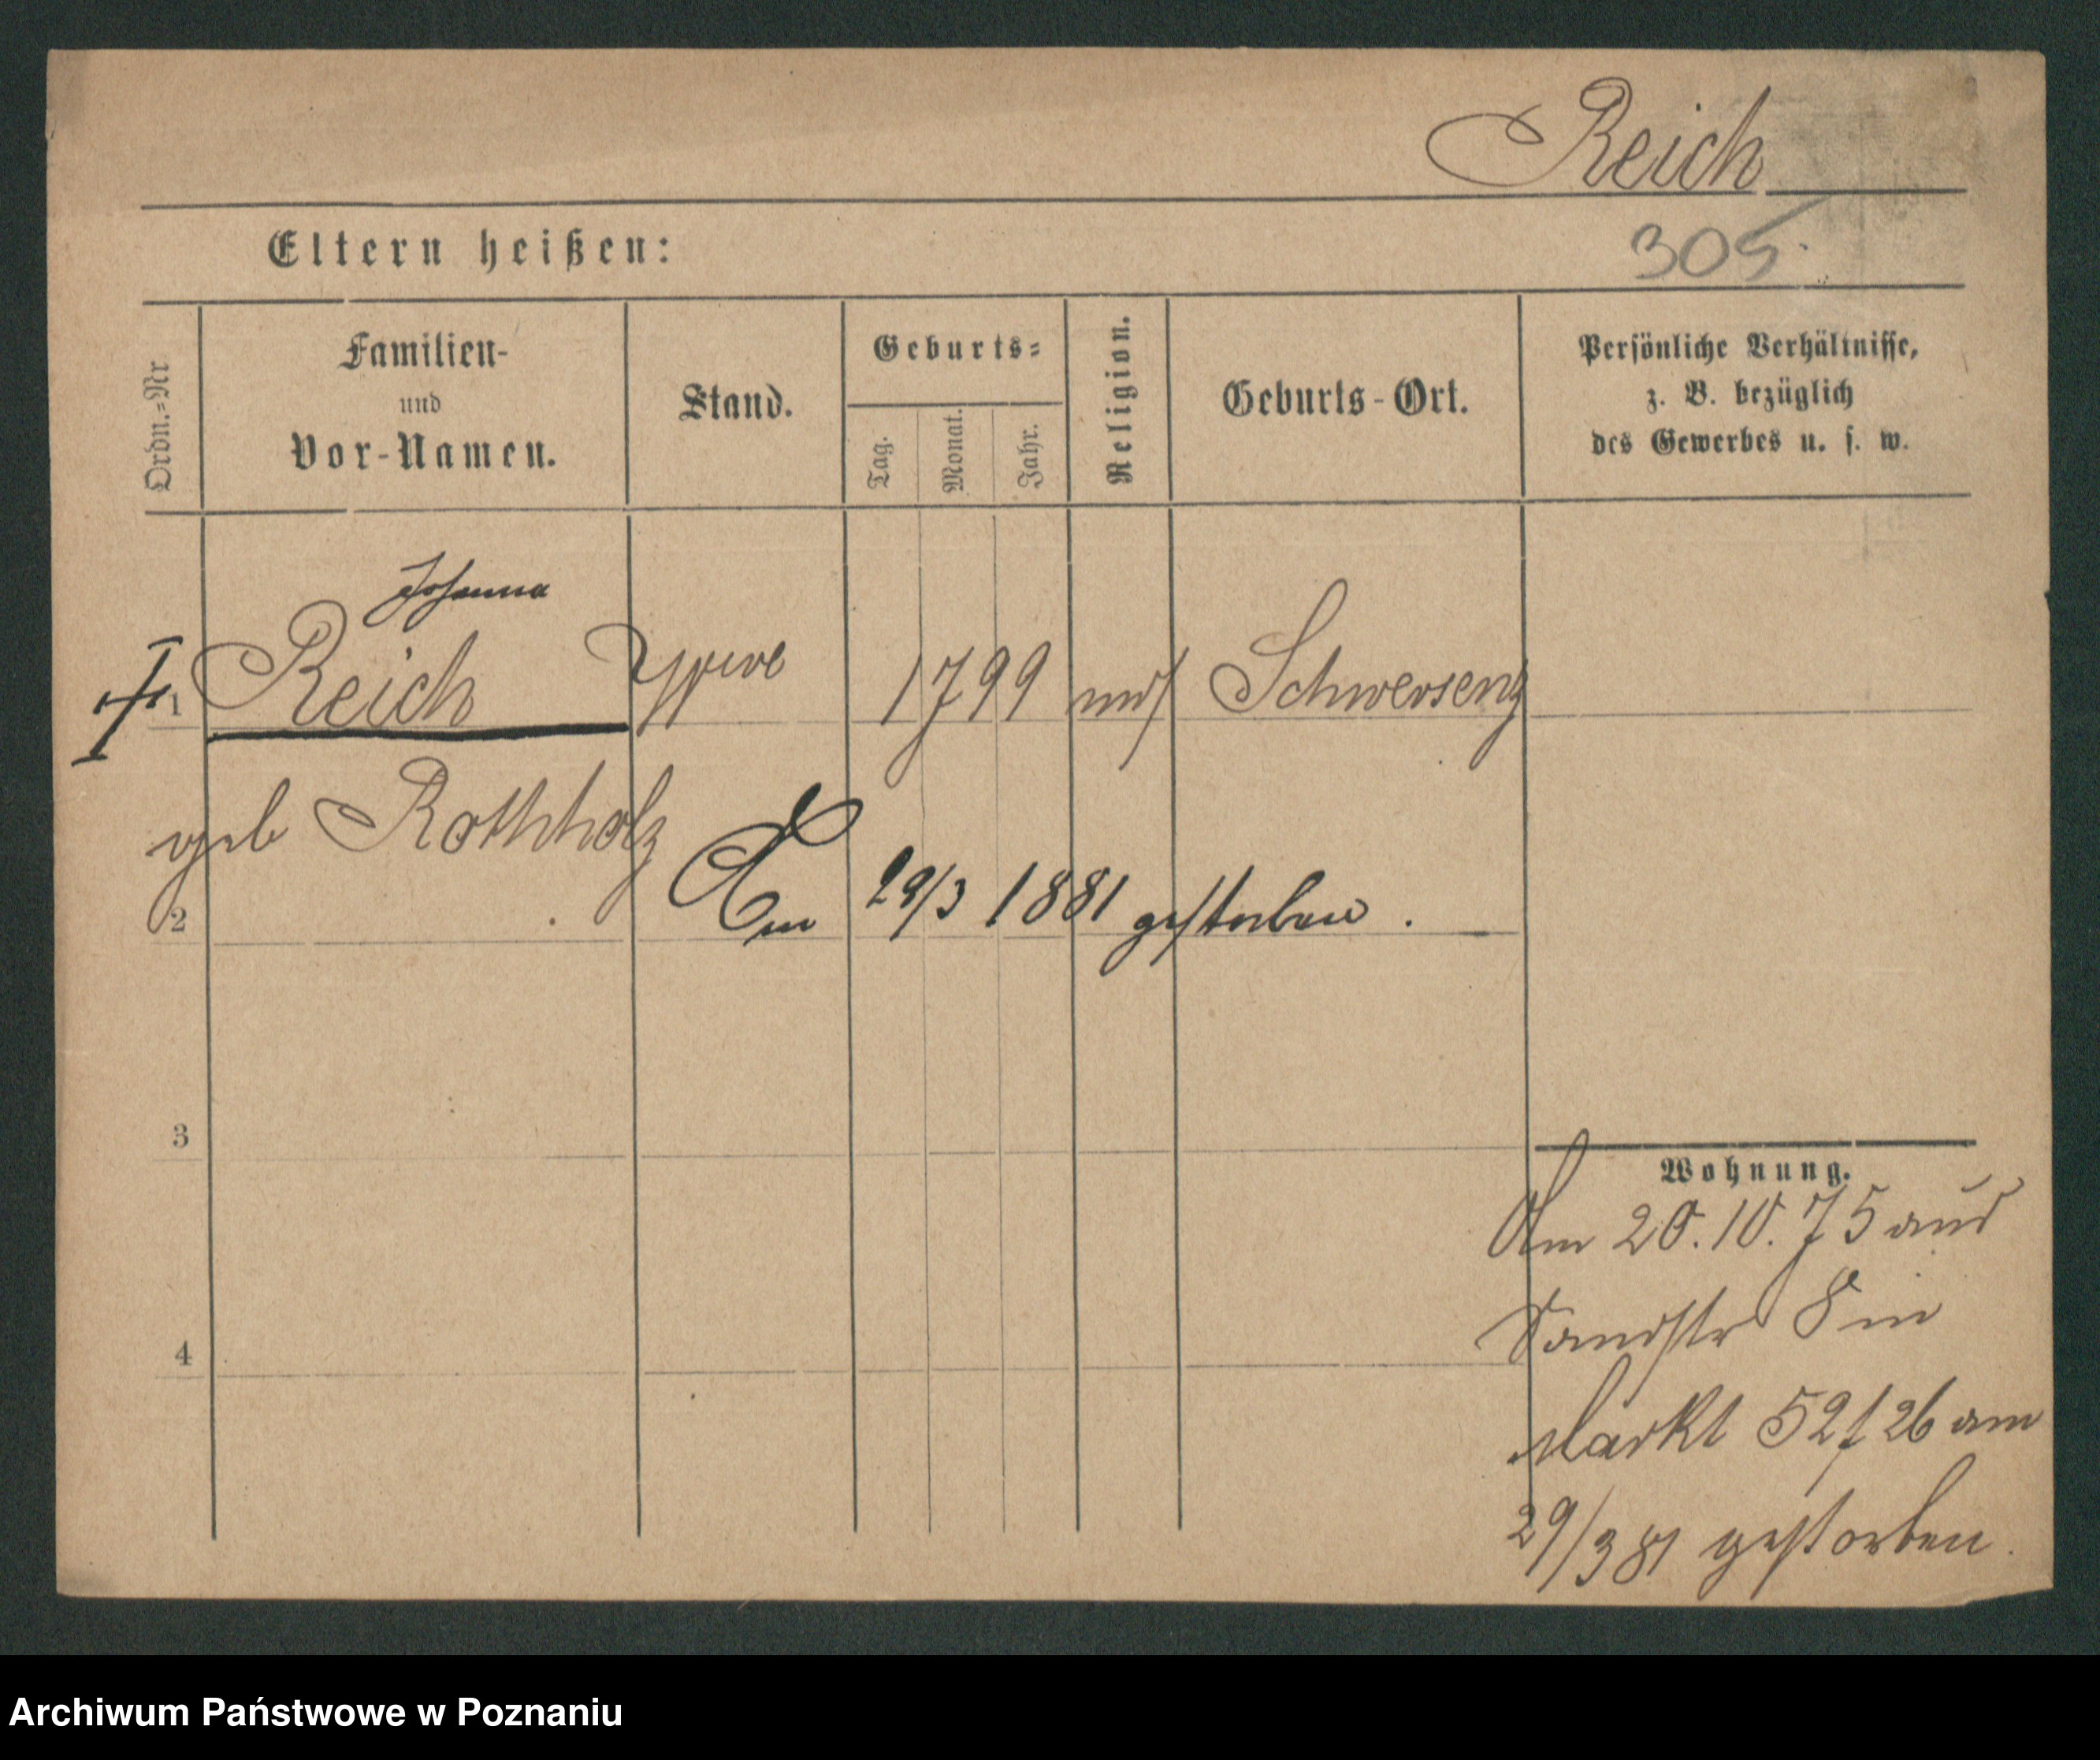 Reich
Eltern heißen:
305.
Ordn.-Nr
Familien-
und
Vor-Namen.
Stand.
Geburts-
Tag.
Monat.
Jahr.
Religion.
Geburts-Ort.
Persönliche Verhältnisse,
z. B. bezüglich
des Gewerbes u. s. w.
Johanna
1 Reich Wwe 1799 mos Schwersenz
geb Rothholz
2 Am 29/3 1881 gestorben.
3
4
Wohnung.
Am 20.10.75 aus
Sandstr 8 in
Markt 52 f 26 am
29/3 81 gestorben.
Archiwum Państwowe w Poznaniu